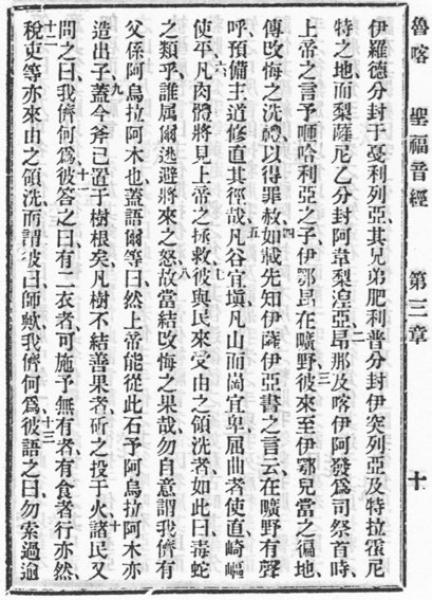 魯喀 聖福音經 第三章 十
伊羅德分封于戛利列亞其兄弟肥利普分封伊突列亞及特拉霍尼
特之地、而梨薩尼乙分封阿韋梨湼亞、二昂那及喀伊阿發爲司祭首時、
上帝之言予咂哈利亞之子伊鄂昂在曠野、三彼來至伊鄂兒當之徧地、
傳改悔之洗禮、以得罪赦、四如載先知伊薩伊亞書之言云、在曠野有聲
呼、預備主道修直其徑哉、五凡谷宜塡、凡山而崗宜卑、屈曲者使直、崎嶇
使平、六凡肉體將見上帝之拯救、七彼與民來受由之領洗者、如此曰、毒蛇
之類乎、誰屬爾逃避將來之怒、八故當結改悔之果哉、勿自意謂我儕有
父係阿烏拉阿木也、蓋語爾等曰、然上帝能從此石予阿烏拉阿木亦
造出子、九蓋今斧已置于樹根矣、凡樹不結善果者、斫之投于火、十諸民又
問之曰、我儕何爲、十一彼答之曰、有二衣者、可施予無有者、有食者行亦然、
十二稅吏等亦來由之領洗、而謂彼曰、師歟、我儕何爲、十三彼語之曰、勿索過逾